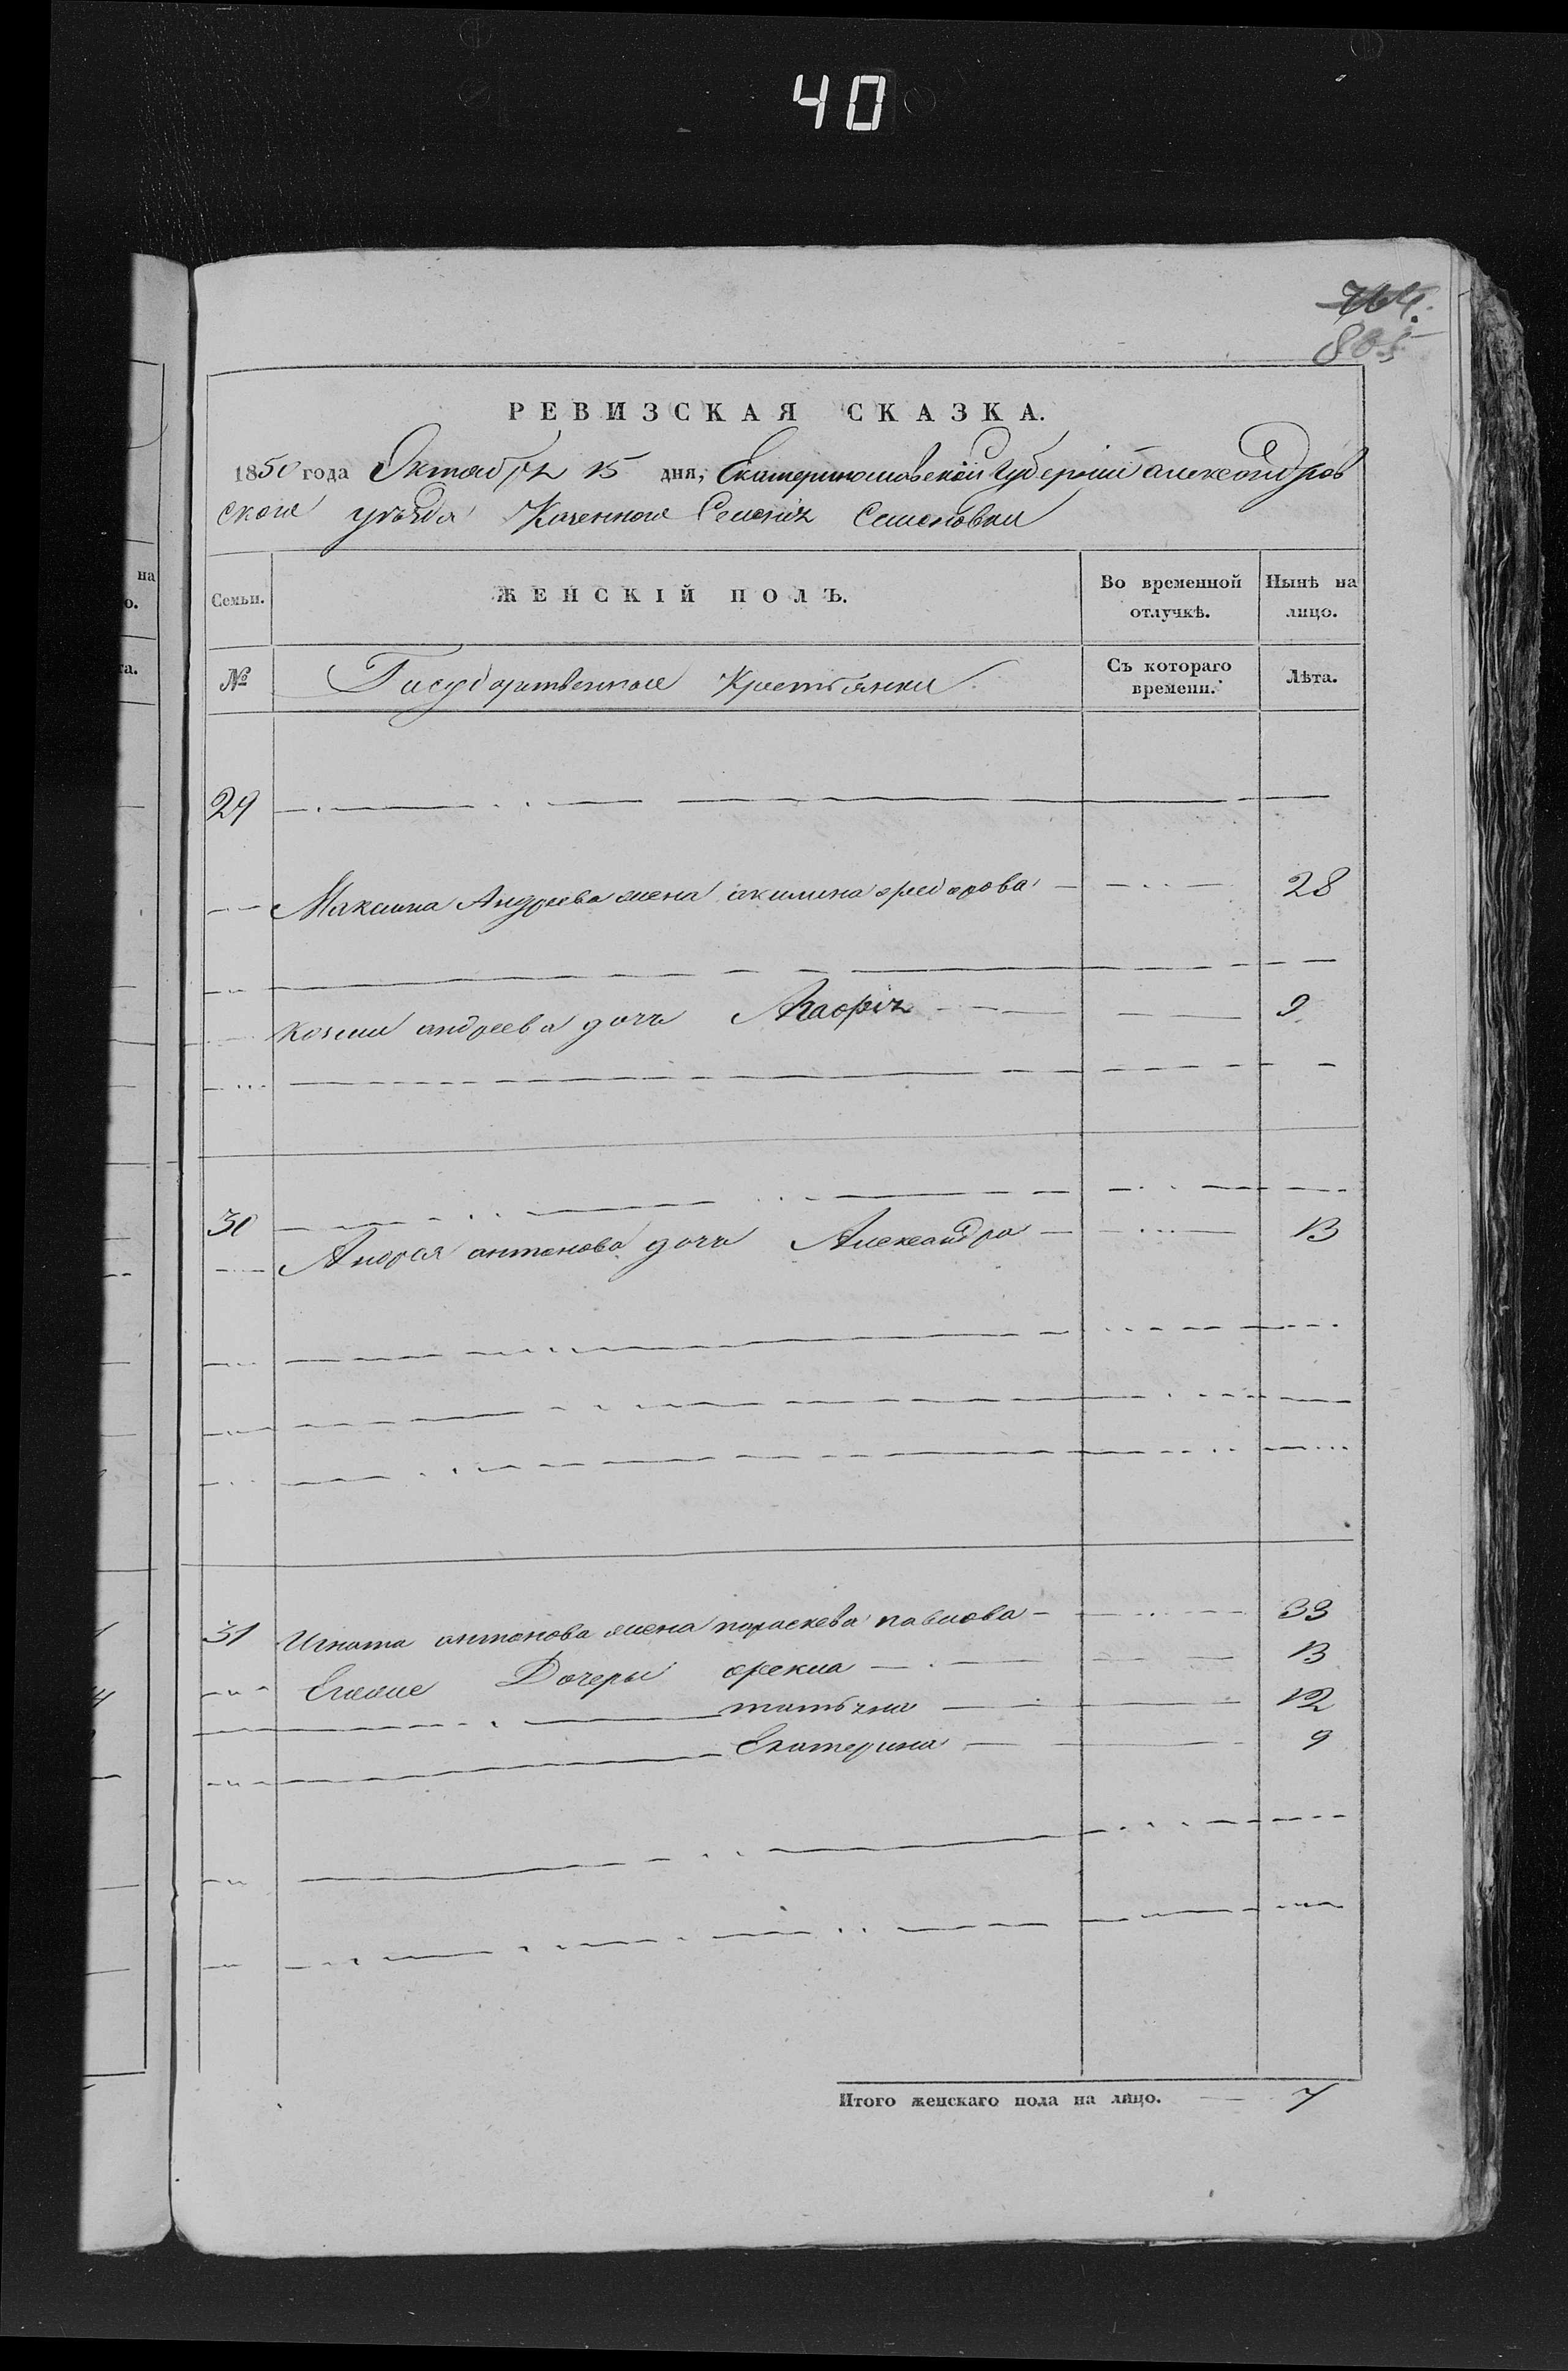 40
764.
805
РЕВИЗСКАЯ СКАЗКА.
1850 года Октября 15 дня, Екатеринославской Губерніи александров
ского уѣзда Казенного Селенія Семеновки
Семьи. ЖЕНСКІЙ ПОЛЪ. Во временной отлучкѣ. Нынѣ на лицо.
№ Государственные Крестьянки Съ котораго времени. Лѣта.
29
Максима Андреева жена акилина федорова 28
козми андреева дочь Агафія 9
30
Андрея антонова дочь Александра 13
31 Игната антонова жена параскева павлова 33
Его Дочеры фекла 13
татьяна 12
Екатерина 9
Итого женскаго пола на лицо. 7
на
о.
та.